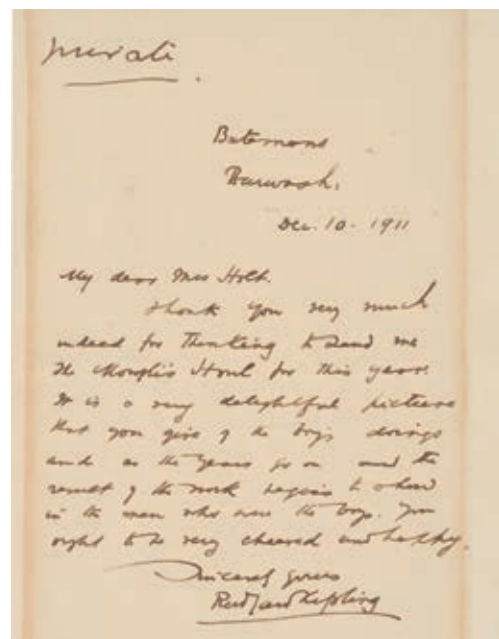 Private
Batemans
Burwash,
Dec. 10. 1911
My dear Mrs Holt.
Thank you very much
indeed for thinking to send me
the Mowgli's Howl for this year.
It is a very delightful picture
that you give of the boys doings
and as the years go on and the
result of the work begins to show
in the men who were the boys. You
ought to be very cheered and happy.
Sincerely yours
Rudyard Kipling